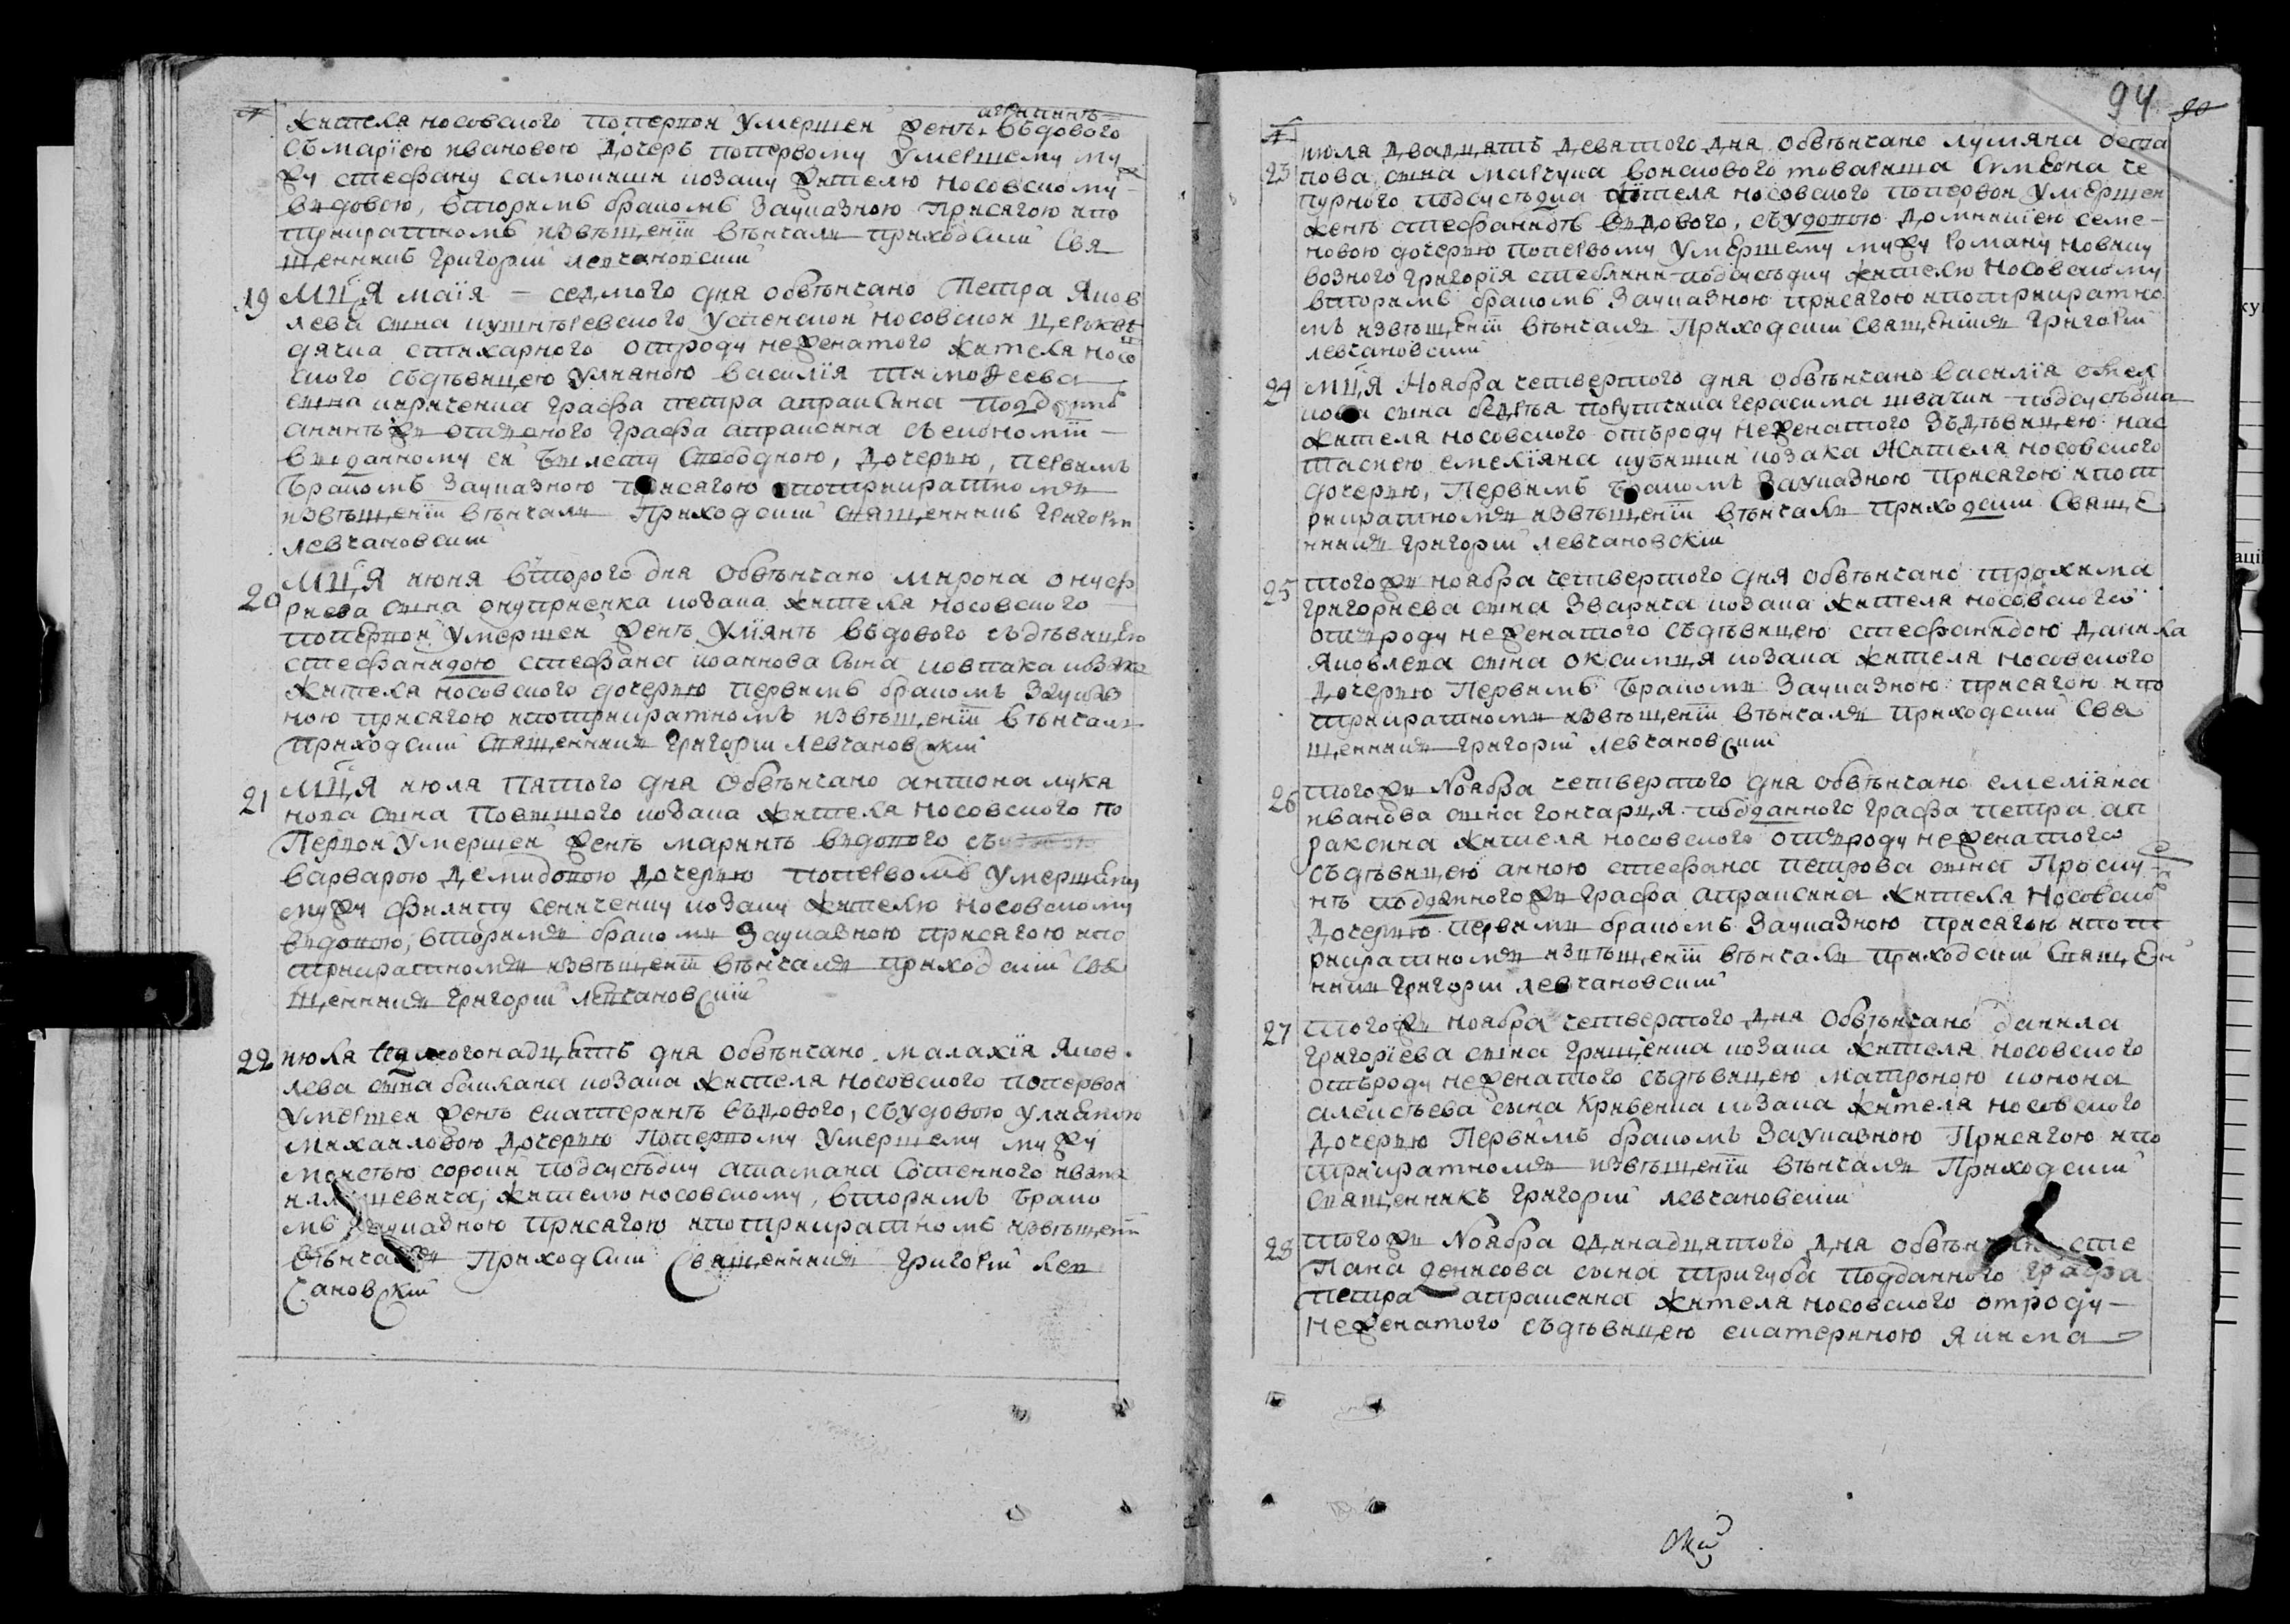 жителя носовского попервой умершей женѣ агрипинѣ въдового
съ марїею ивановою дочеръ попервому умершему му
жу стефану самоиши козаку жителю носовскому
въдовою, вторимъ бракомъ за указною присягою ипо
трикратномъ извѣщенїи вѣнчалъ приходский свя
щенникъ григорий левчановский
19 Мца маїя — седмого дня обвѣнчано петра Яков
лева сина кушнѣревского успенской носовской церкве
дячка стихарного отроду неженатого жителя носов
ского съдѣвицею улияною василїя тимофеева
сина кириченка графа петра апраксина подданъ
отцу оного графа апраксина съекономїи —
виданному ей билету свободною, дочерию, первимъ
бракомъ за указною присягою ипотрикратномъ
извѣщенїи вѣнчалъ Приходский священникъ григорий
левчановский
20 Мца июня второго дня обвѣнчано мирона онуф
риева сина онуприенка козака жителя носовского
попервой умершей женѣ улїянѣ въдового съдѣвицею
стефанидою стефана иоаннова сина ковпака козака
жителя носовского дочерию первимъ бракомъ за указ
ною присягою ипотрикратномъ извѣщенїи вѣнчалъ
приходский священникъ григорий левчановский
21 Мца июля пятого дня обвѣнчано антона лукя
нова сина козака жителя носовского по
первой умершей женѣ маринѣ въдового съ
варварою демидовою дочерию попервомъ умершему
мужу филипу сениченку козаку жителю носовскому
въдовою, вторимъ бракомъ за указною присягою ипо
трикратномъ извѣщенїи вѣнчалъ приходский свя
щенникъ григорий левчановский
22 июля седмогонадцять дня обвѣнчано малахїя Яков
лева сина баклана козака жителя носовского попервой
умершей женѣ екатеринѣ въдового, съудовою улияною
михайловою дочерию попервому умершему мужу
моисѣю сороки подсусѣдку атамана сотенного ивана
жителю носовскому, вторимъ брако
мъ за указною присягою ипотрикратномъ извѣщенїи
вѣнчалъ Приходский Священникъ григорий лев
чановский
94 90
23 июля двадцять девятого дня обвѣнчано лукяна
пова сина марчука вонскового товариша симеона че
пурного подсусѣдка жителя носовского попервой умершей
женѣ стефанидѣ въдового, съудовою домникїею семе-
новою дочерию попервому умершему мужу роману новику
возного григорїя стеблини подсусѣдку жителю носовскому
вторимъ бракомъ за указною присягою ипотрикратно
мъ извѣщенїи вѣнчалъ Приходский священникъ григорий
левчановский
24 мца Ноября четвертого дня обвѣнчано василїя
сина порутчика герасима швачки подсусѣдка
жителя носовского отъроду неженатого зъдѣвицею нас
тасиею емелїяна козака жителя носовского
дочерию, Первимъ бракомъ за указною присягою ипот
рикратномъ извѣщенїи вѣнчалъ приходский Свяще
нникъ григорий левчановский
25 тогожъ ноября четвертого дня обвѣнчано трохима
григориева сина зварича козака жителя носовского
отъроду неженатого съдѣвицею стефанидою данила
яковлева сина оксимця козака жителя носовского
дочерию Первимъ бракомъ за указною присягою ипо
трикратномъ извѣщенїи вѣнчалъ приходский свя
щенникъ григорий левчановский
26 тогожъ Ноября четвертого дня обвѣнчано емелїяна
иванова сина гончарця подданного графа петра ап
раксина жителя носовского отъроду неженатого
съдѣвицею анною стефана петрова сина Проску
рнѣ подданногожъ графа апраксина жителя носовского
дочерию первимъ бракомъ за указною присягою ипот
рикратномъ извѣщенїи вѣнчалъ приходский Священ
никъ григорий левчановский
27 тогожъ ноября четвертого дня обвѣнчано данила
григорїева сина грищенка козака жителя носовского
отъроду неженатого съдѣвицею матроною конона
алексѣева сина кривенка козака жителя носовского
дочерию Первимъ бракомъ за указною Присягою ипо
трикратномъ извѣщенїи вѣнчалъ Приходский
священникъ григорий левчановский
28 тогожъ Ноября одинадцятого дня обвѣнчано сте
пана денисова сына тригуба подданного графа
петра апраксина жителя носовского отроду —
неженатого съдѣвицею екатериною якима